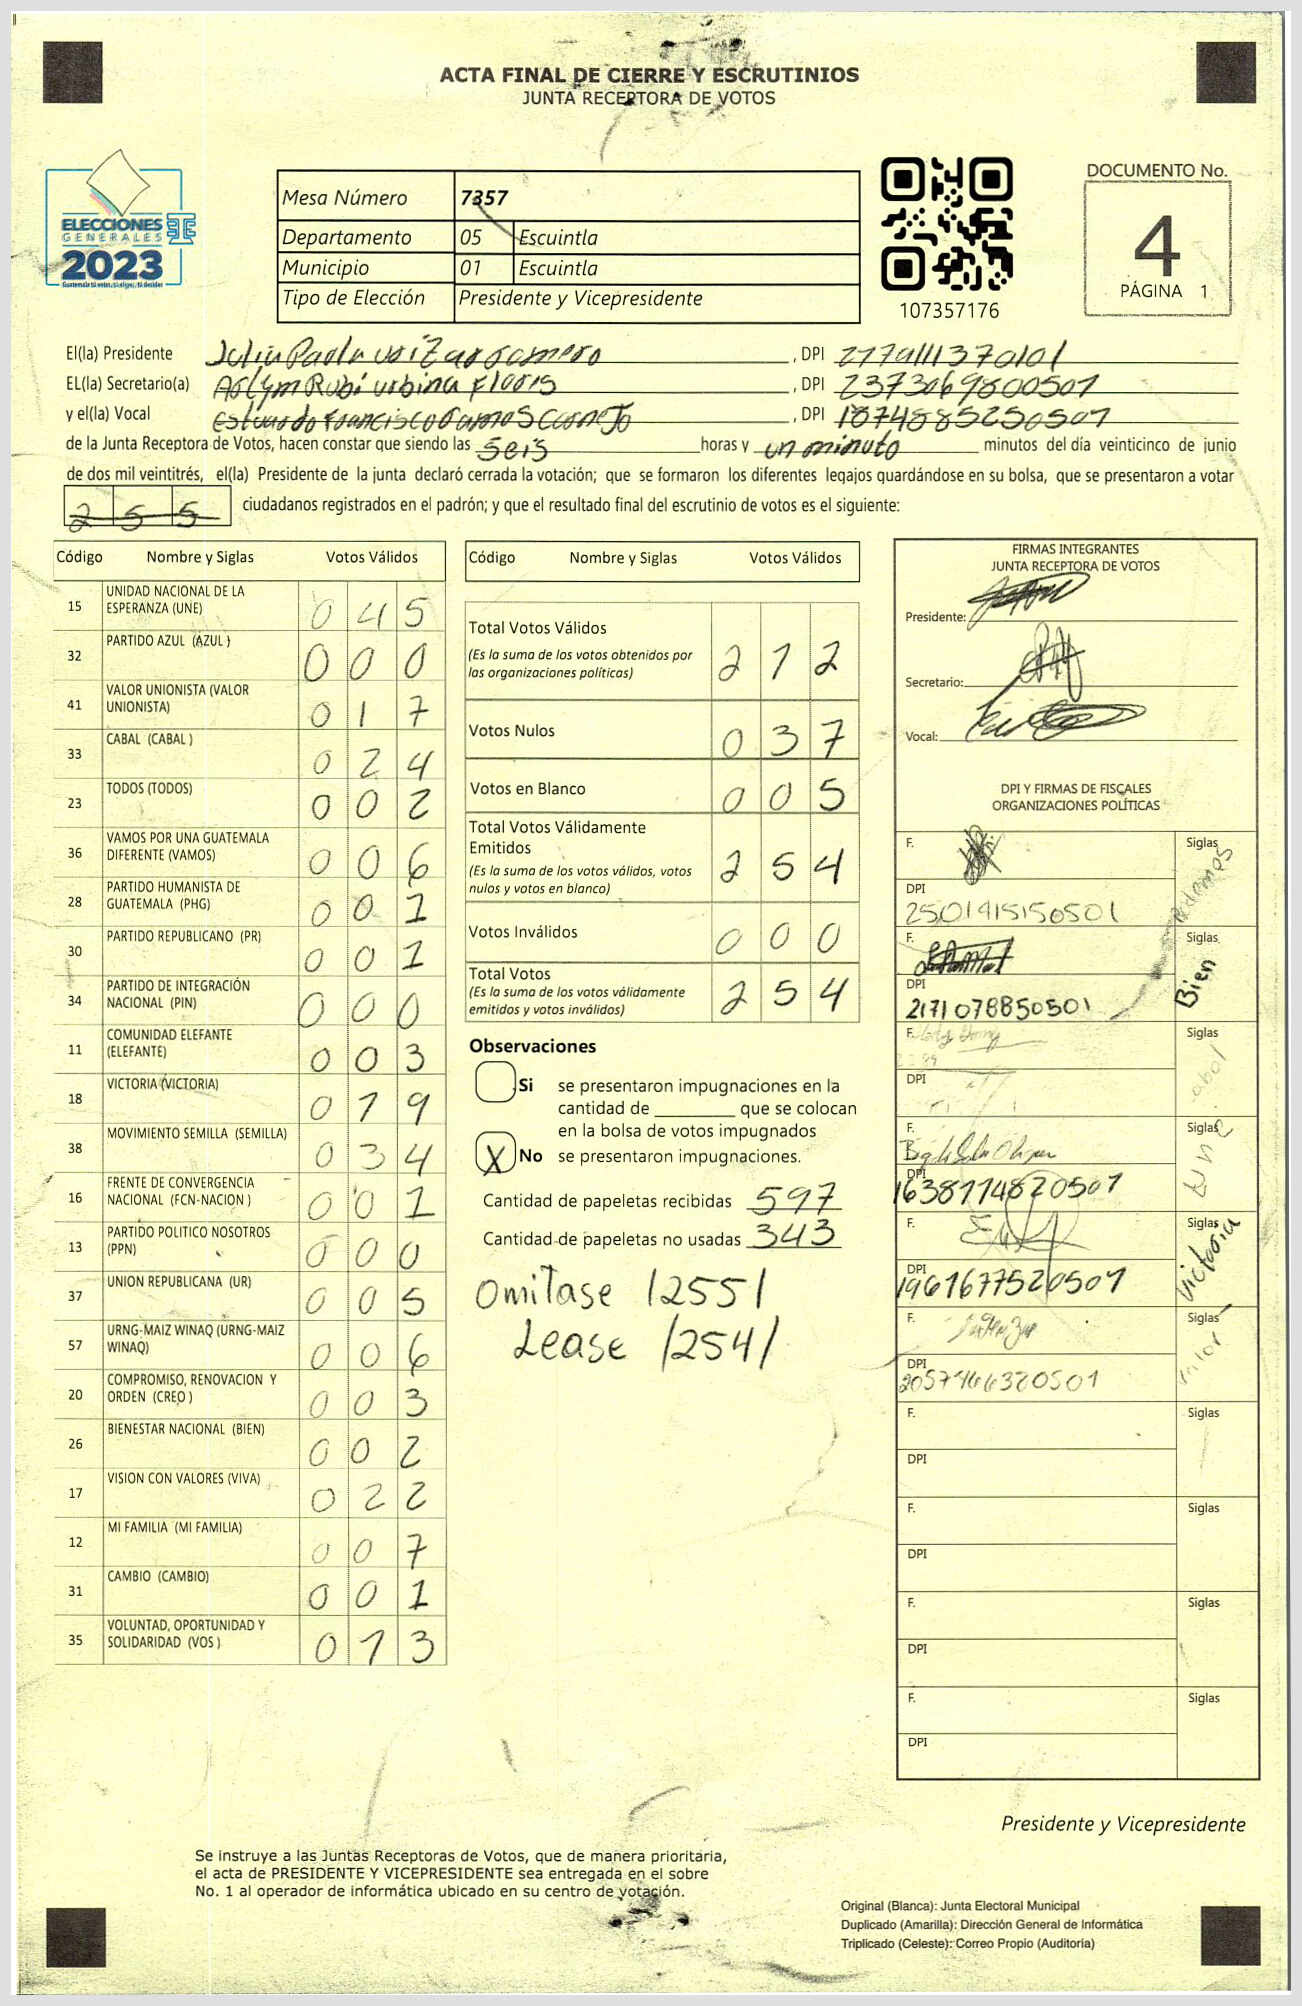 ACTA FINAL DE CIERRE Y ESCRUTINIOS
JUNTA RECEPTORA DE VOTOS
ELECCIONES
GENERALES
2023
Guatemala tú votas, tú eliges, tú decides
Mesa Número 7357
Departamento 05 Escuintla
Municipio 01 Escuintla
Tipo de Elección Presidente y Vicepresidente
107357176
DOCUMENTO No.
4
PÁGINA 1
El(la) Presidente Julia Paola , DPI
EL(la) Secretario(a) Rubi Urbina Flores , DPI 2373069800501
y el(la) Vocal Estuardo Francisco Ramos Cornejo , DPI 1874885250501
de la Junta Receptora de Votos, hacen constar que siendo las seis horas y un minuto minutos del día veinticinco de junio
de dos mil veintitrés, el(la) Presidente de la junta declaró cerrada la votación; que se formaron los diferentes legajos guardándose en su bolsa, que se presentaron a votar
255 ciudadanos registrados en el padrón; y que el resultado final del escrutinio de votos es el siguiente:
Código Nombre y Siglas Votos Válidos
15 UNIDAD NACIONAL DE LA ESPERANZA (UNE) 0 4 5
32 PARTIDO AZUL (AZUL ) 0 0 0
41 VALOR UNIONISTA (VALOR UNIONISTA) 0 1 7
33 CABAL (CABAL ) 0 2 4
23 TODOS (TODOS) 0 0 2
36 VAMOS POR UNA GUATEMALA DIFERENTE (VAMOS) 0 0 6
28 PARTIDO HUMANISTA DE GUATEMALA (PHG) 0 0 1
30 PARTIDO REPUBLICANO (PR) 0 0 1
34 PARTIDO DE INTEGRACIÓN NACIONAL (PIN) 0 0 0
11 COMUNIDAD ELEFANTE (ELEFANTE) 0 0 3
18 VICTORIA (VICTORIA) 0 1 9
38 MOVIMIENTO SEMILLA (SEMILLA) 0 3 4
16 FRENTE DE CONVERGENCIA NACIONAL (FCN-NACION ) 0 0 1
13 PARTIDO POLITICO NOSOTROS (PPN) 0 0 0
37 UNION REPUBLICANA (UR) 0 0 5
57 URNG-MAIZ WINAQ (URNG-MAIZ WINAQ) 0 0 6
20 COMPROMISO, RENOVACION Y ORDEN (CREO ) 0 0 3
26 BIENESTAR NACIONAL (BIEN) 0 0 2
17 VISION CON VALORES (VIVA) 0 2 2
12 MI FAMILIA (MI FAMILIA) 0 0 7
31 CAMBIO (CAMBIO) 0 0 1
35 VOLUNTAD, OPORTUNIDAD Y SOLIDARIDAD (VOS ) 0 1 3
Código Nombre y Siglas Votos Válidos
Total Votos Válidos 2 1 2
(Es la suma de los votos obtenidos por
las organizaciones políticas)
Votos Nulos 0 3 7
Votos en Blanco 0 0 5
Total Votos Válidamente
Emitidos 2 5 4
(Es la suma de los votos válidos, votos
nulos y votos en blanco)
Votos Inválidos 0 0 0
Total Votos 2 5 4
(Es la suma de los votos válidamente
emitidos y votos inválidos)
Observaciones
Si se presentaron impugnaciones en la
cantidad de ________ que se colocan
en la bolsa de votos impugnados
X No se presentaron impugnaciones.
Cantidad de papeletas recibidas 597
Cantidad de papeletas no usadas 343
Omitase /255/
Lease /254/
FIRMAS INTEGRANTES
JUNTA RECEPTORA DE VOTOS
Presidente:
Secretario:
Vocal:
DPI Y FIRMAS DE FISCALES
ORGANIZACIONES POLÍTICAS
F. Siglas
DPI 2501415150501
F. Siglas Bien
DPI 2171078850501
F. Siglas
DPI
F. Siglas une
DPI 1638114820501
F. Siglas Victoria
DPI 1961677520501
F. Siglas Valor
DPI
F. Siglas
DPI
F. Siglas
DPI
F. Siglas
DPI
F. Siglas
DPI
Presidente y Vicepresidente
Se instruye a las Juntas Receptoras de Votos, que de manera prioritaria,
el acta de PRESIDENTE Y VICEPRESIDENTE sea entregada en el sobre
No. 1 al operador de informática ubicado en su centro de votación.
Original (Blanca): Junta Electoral Municipal
Duplicado (Amarilla): Dirección General de Informática
Triplicado (Celeste): Correo Propio (Auditoría)